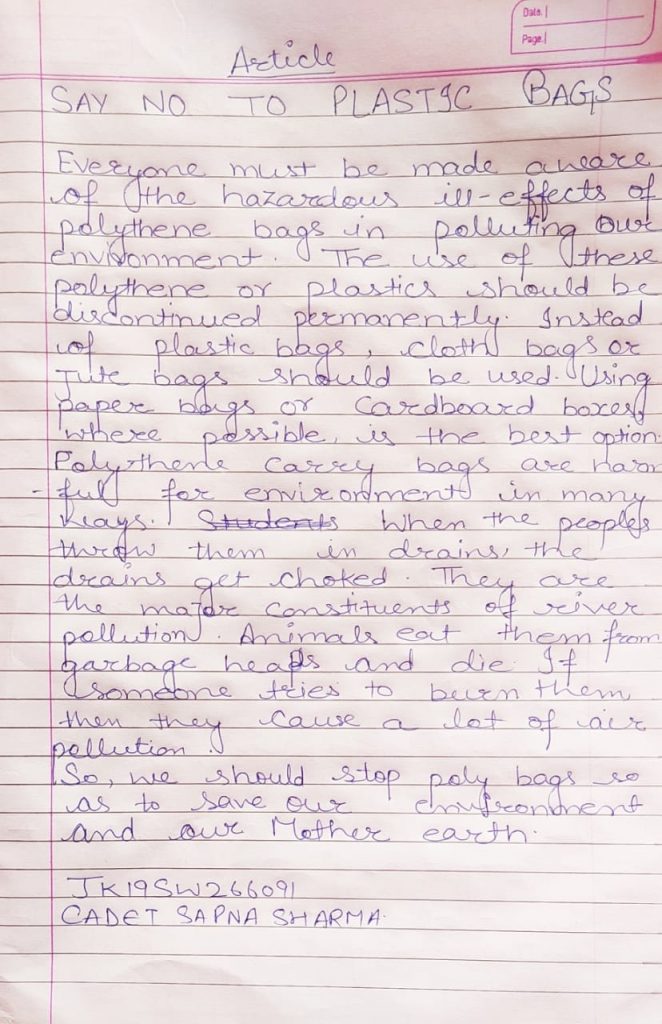 Date.|
Page.|
Article
SAY NO TO PLASTIC BAGS
Everyone must be made aware
of the hazardous ill-effects of
polythene bags in polluting our
environment. The use of these
polythene or plastics should be
discontinued permanently. Instead
of plastic bags, cloth bags or
Jute bags should be used. Using
paper bags or cardboard boxes,
where possible, is the best option.
Polythene carry bags are harm
-ful for environment in many
ways. Students When the people's
throw them in drains, the
drains get choked. They are
the major constituents of river
pollution. Animals eat them from
garbage heaps and die. If
someone tries to burn them,
then they cause a lot of air
pollution.
So, we should stop poly bags so
as to save our environment
and our Mother earth.
JK19SW266091
CADET SAPNA SHARMA.